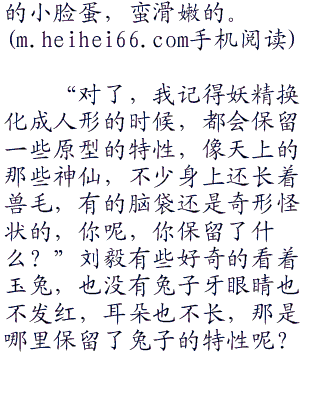 的小脸蛋，蛮滑嫩的。
(m.heihei66.com手机阅读)
“对了，我记得妖精换
化成人形的时候，都会保留
一些原型的特性，像天上的
那些神仙，不少身上还长着
兽毛，有的脑袋还是奇形怪
状的，你呢，你保留了什
么？”刘毅有些好奇的看着
玉兔，也没有兔子牙眼睛也
不发红，耳朵也不长，那是
哪里保留了兔子的特性呢？